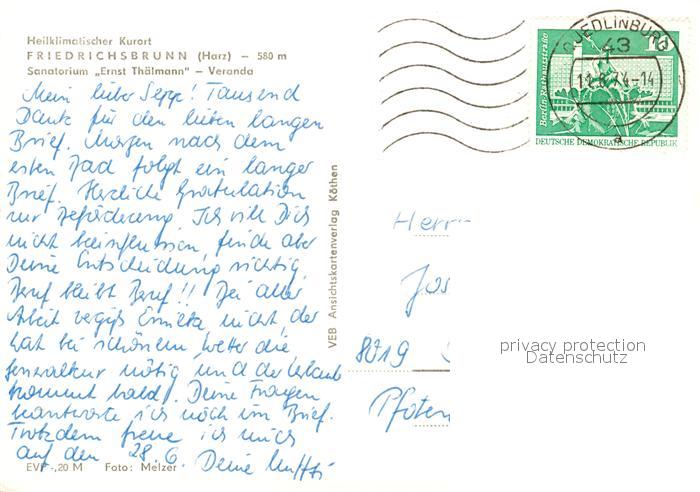 Heilklimatischer Kurort
FRIEDRICHSBRUNN (Harz) – 580 m
Sanatorium „Ernst Thälmann" – Veranda
Mein lieber Sepp! Tausend
Dank für den lieben langen
Brief. Morgen nach dem
ersten Bad folgt ein langer
Brief. Herzliche Gratulation
zur Beförderung. Ich will Dich
nicht beeinflussen, finde aber
Deine Entscheidung richtig,
Beruf bleibt Beruf!! Bei aller
Arbeit vergiß nicht, der
hat bei schönem Wetter die
Generalkur nötig und der Urlaub
kommt bald! Deine Fragen
beantworte ich noch im Brief.
Trotzdem freue ich mich
auf den 28.6. Deine
EVP -,20 M Foto: Melzer
VEB Ansichtskartenverlag Köthen
QUEDLINBURG
43
-14
a
10
Berlin, Rathausstraße
DEUTSCHE DEMOKRATISCHE REPUBLIK
Herr
Jos
8019
Pfoten
privacy protection
Datenschutz